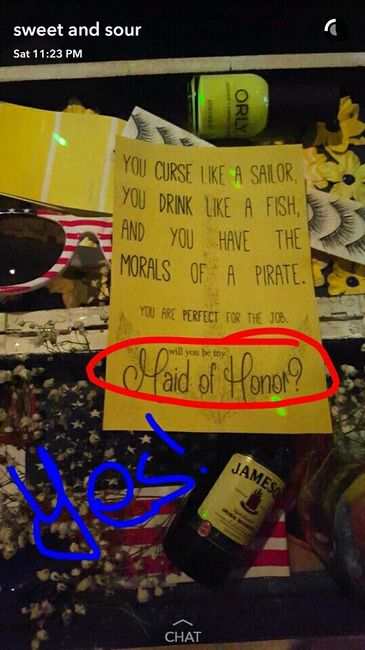 sweet and sour
Sat 11:23 PM
ORLY
YOU CURSE LIKE A SAILOR,
YOU DRINK LIKE A FISH,
AND YOU HAVE THE
MORALS OF A PIRATE.
YOU ARE PERFECT FOR THE JOB.
will you be my
Maid of Honor?
Yes!
JAMES
IRISH WHISKEY
CHAT